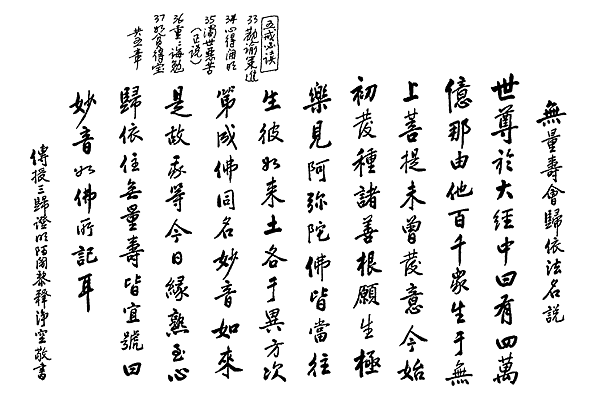 無量壽會歸依法名説
世尊於大經中曰有四萬
億那由他百千衆生于無
上菩提未曾發意今始
初發種諸善根願生極
樂見阿弥陀佛皆當往
生彼如来土各于異方次
第成佛同名妙音如來
是故我等今日緣熟至心
歸依住無量壽皆宜號曰
妙音如佛所記耳
傳授三歸證明陌闍黎釋淨空敬書
五戒必讀
33勸諭策進
34心得開明
35濁世惡苦
(正説)
36重重誨勉
37如貧得宝
共五章